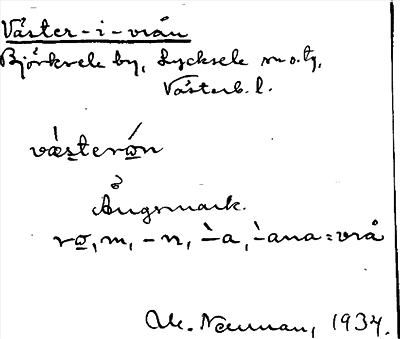 Väster-i-vrån
Björksele by, Lycksele m o. tg,
Västerb. l.
væsterón
Ängsmark.
vω, m, -n, -̀a, -̀ana = vrå
1934.